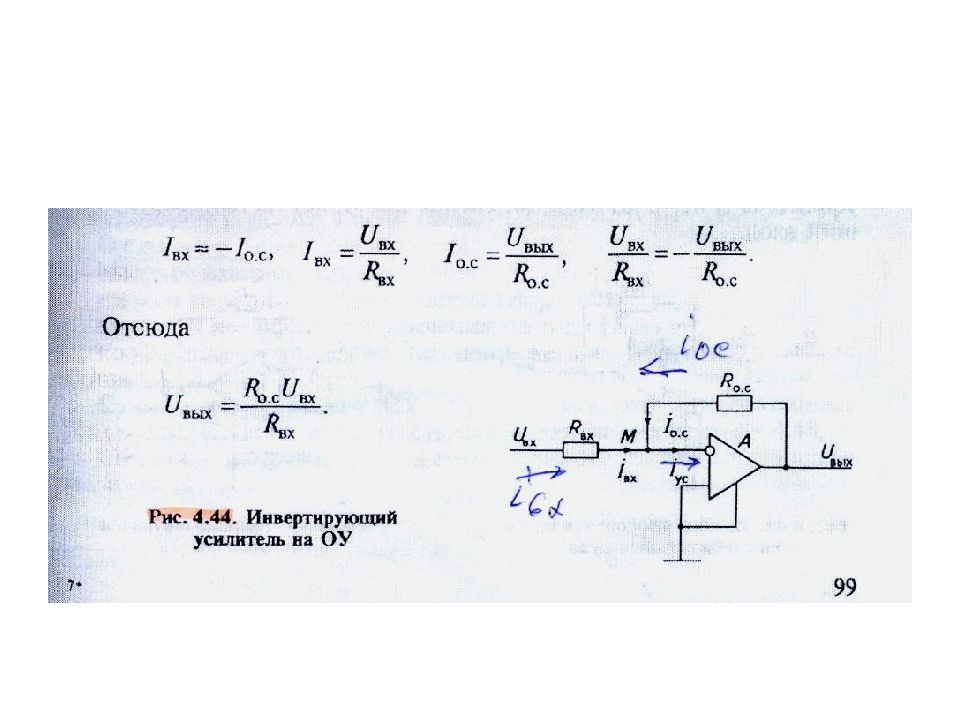 I_вх ≈ −I_о.с, I_вх = U_вх/R_вх, I_о.с = U_вых/R_о.с, U_вх/R_вх = −U_вых/R_о.с.
Отсюда
ioc
R_о.с
U_вых = R_о.с U_вх/R_вх.
U_вх R_вх M I_о.с A U_вых
i_вх I_ус
iвх
Рис. 4.44. Инвертирующий
усилитель на ОУ
7* 99